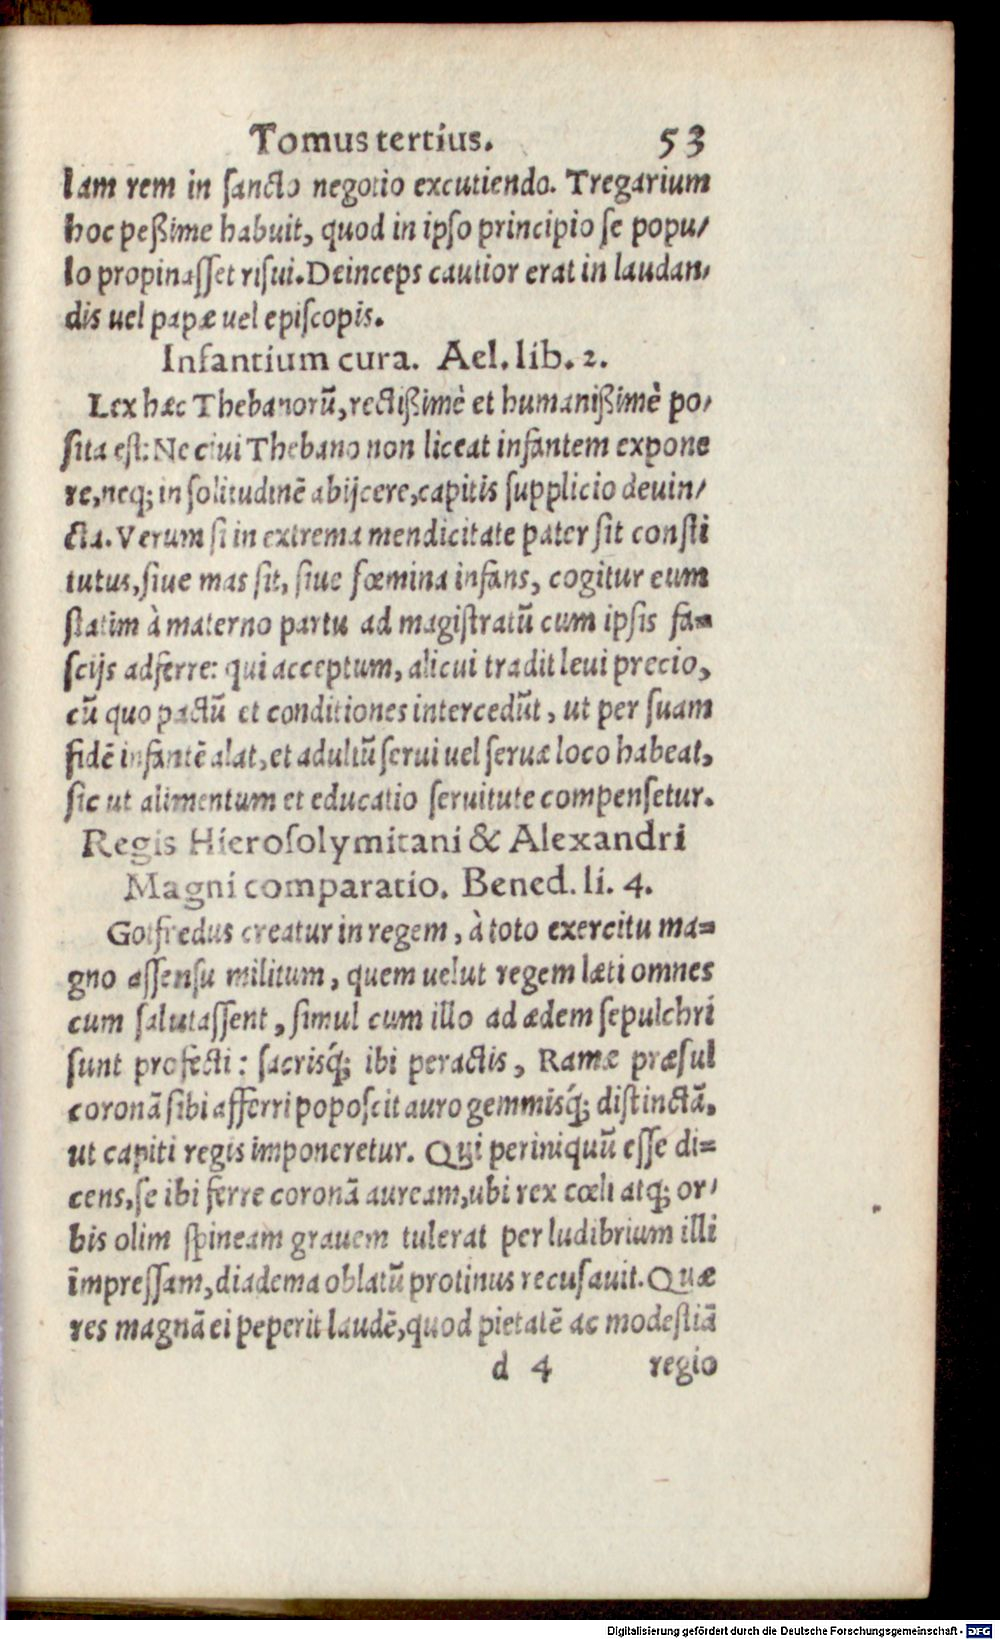 Tomus tertius. 53
lam rem in sancto negotio excutiendo. Tregarium
hoc peßime habuit, quod in ipso principio se popu/
lo propinasset risui. Deinceps cautior erat in laudan/
dis uel papæ uel episcopis.
Infantium cura. Ael. lib. 2.
Lex hæc Thebanorū, rectißimè et humanißimè po/
sita est: Ne ciui Thebano non liceat infantem expone
re, neq; in solitudinē abijcere, capitis supplicio deuin/
cta. Verum si in extrema mendicitate pater sit consti
tutus, siue mas sit, siue fœmina infans, cogitur eum
statim à materno partu ad magistratū cum ipsis fa=
scijs adferre: qui acceptum, alicui tradit leui precio,
cū quo pactū et conditiones intercedūt, ut per suam
fidē infantē alat, et adultū serui uel seruæ loco habeat,
sic ut alimentum et educatio seruitute compensetur.
Regis Hierosolymitani & Alexandri
Magni comparatio. Bened. li. 4.
Gotfredus creatur in regem, à toto exercitu ma=
gno assensu militum, quem uelut regem læti omnes
cum salutassent, simul cum illo ad ædem sepulchri
sunt profecti: sacrisq́; ibi peractis, Ramæ præsul
coronā sibi afferri poposcit auro gemmisq́; distinctā,
ut capiti regis imponeretur. Qui periniquū esse di=
cens, se ibi ferre coronā auream, ubi rex cœli atq; or/
bis olim spineam grauem tulerat per ludibrium illi
impressam, diadema oblatū protinus recusauit. Quæ
res magnā ei peperit laudē, quod pietatē ac modestiā
d 4 regio
Digitalisierung gefördert durch die Deutsche Forschungsgemeinschaft - DFG